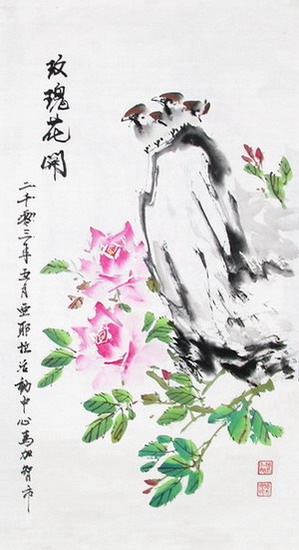 玫瑰花開
二千零三年五月亞耶拉活動中心馬加智市